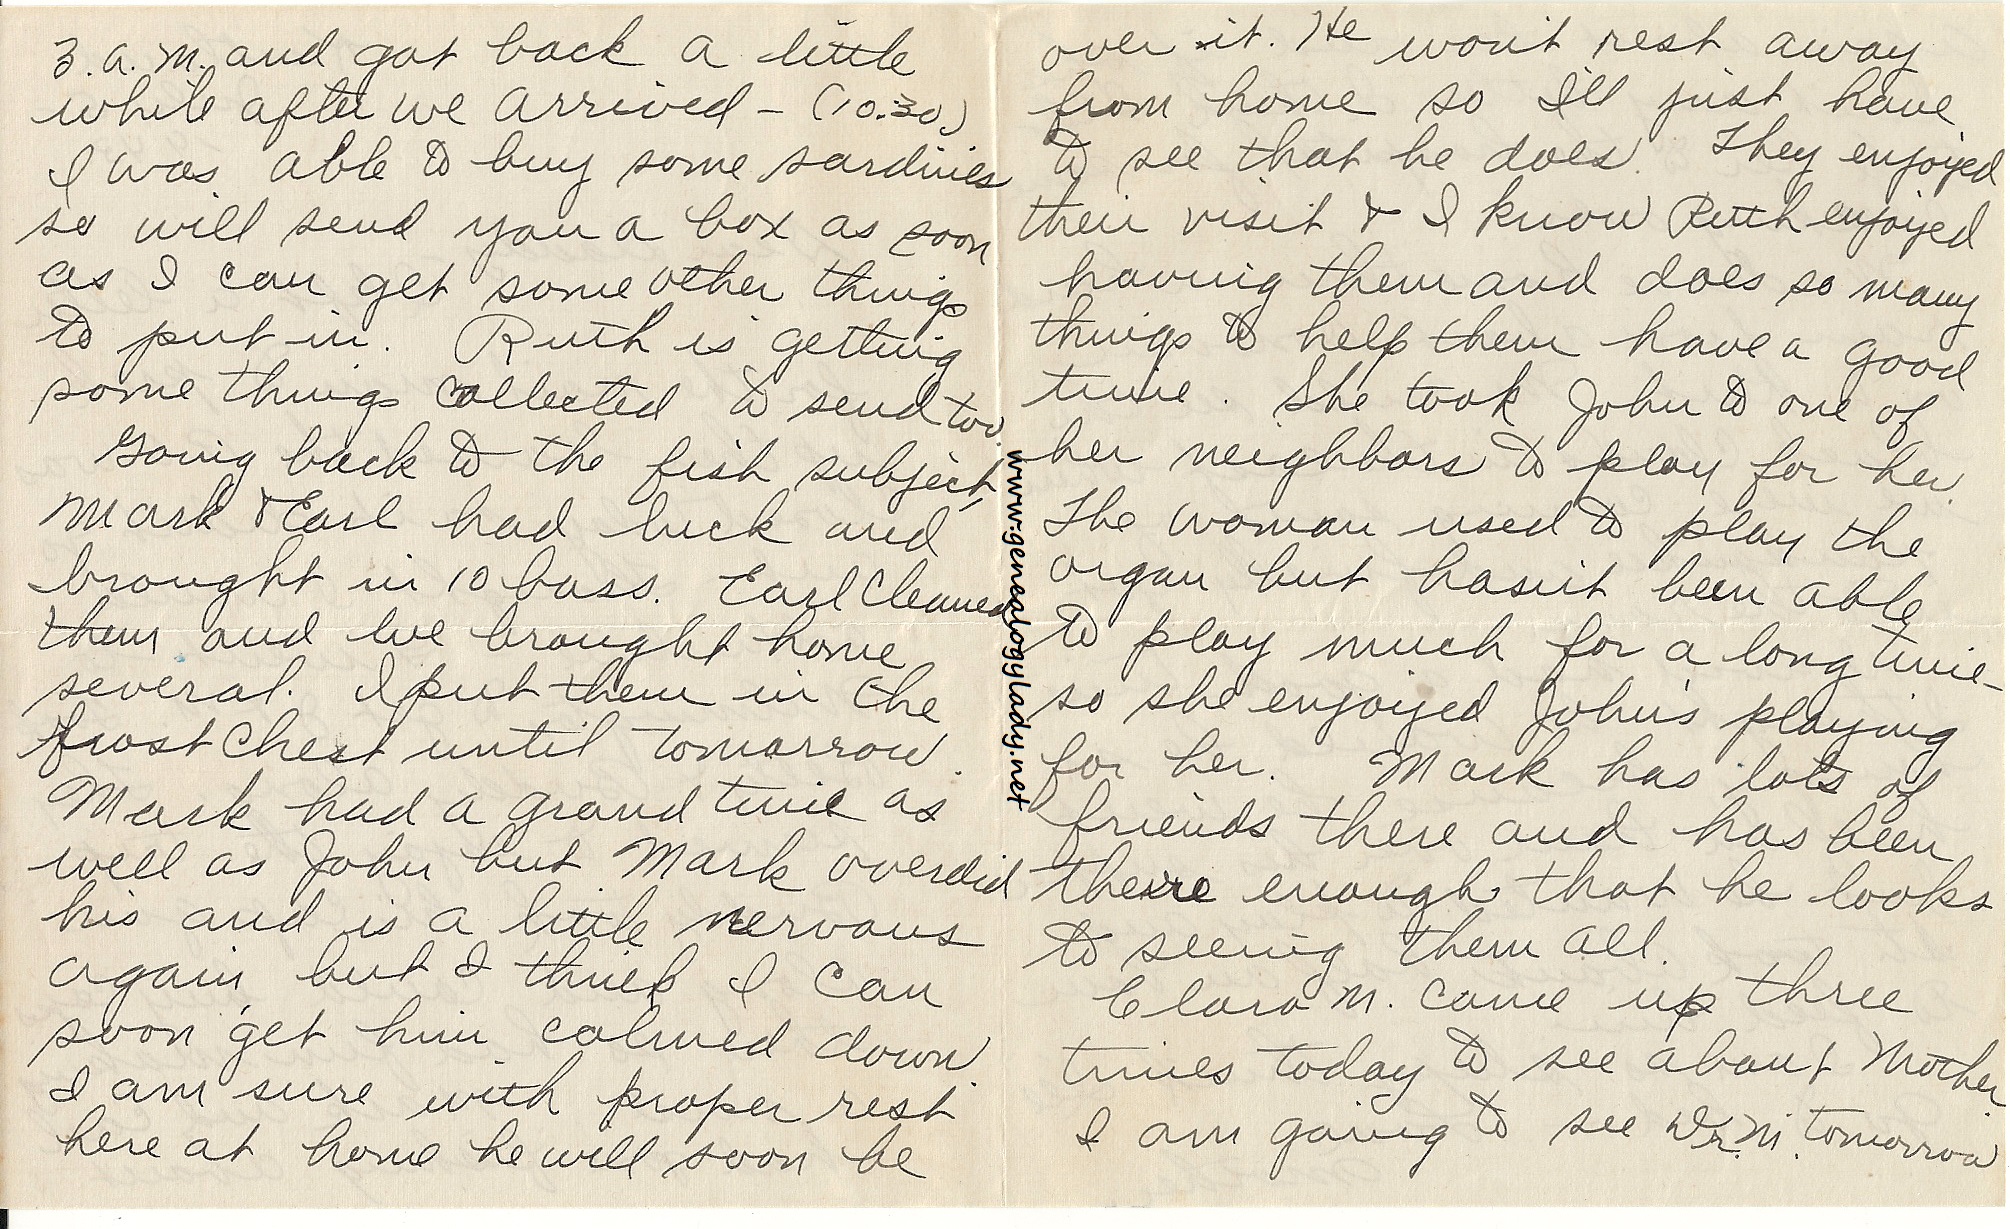 3. a. m. and got back a little
while after we arrived – (10:30)
I was able to buy some sardines
so will send you a box as soon
as I can get some other things
to put in. Ruth is getting
some things collected to send too.
Going back to the fish subject,
Mark & Earl had luck and
brought in 10 bass. Earl cleaned
them and we brought home
several. I put them in the
frost chest until tomorrow.
Mark had a grand time as
well as John but Mark overdid
his and is a little nervous
again, but I think I can
soon get him calmed down.
I am sure with proper rest
here at home he will soon be
over it. He won't rest away
from home so I'll just have
to see that he does. They enjoyed
their visit & I know Ruth enjoyed
having them and does so many
things to help them have a good
time. She took John to one of
her neighbors to play for her.
The woman used to play the
organ but hasn't been able
to play much for a long time –
so she enjoyed John's playing
for her. Mark has lots of
friends there and has been
there enough that he looks
to seeing them all.
Clara M. came up three
times today to see about Mother.
I am going to see Dr. M. tomorrow
www.genealogylady.net